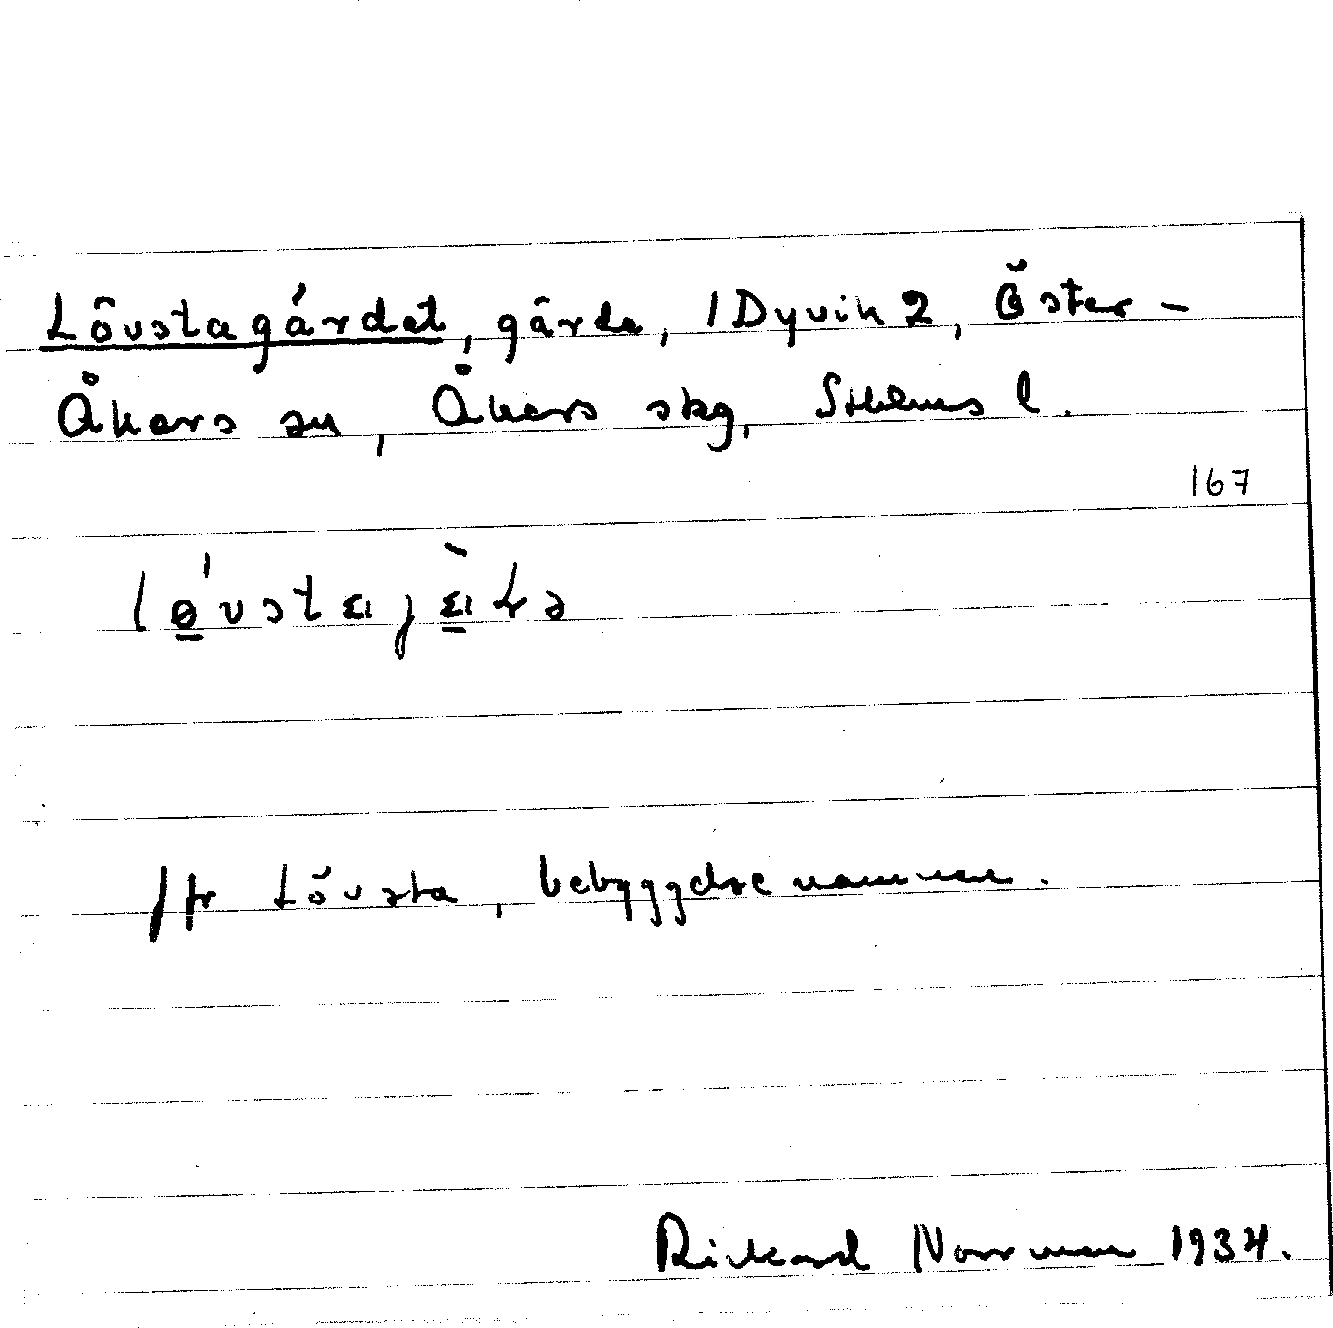 Lövstagärdet, gärde, / Dyvik 2, Öster-
Åkers sn, Åkers skg, Sthlms l.
167
Jfr Lövsta, bebyggelsenamnen.
Rickard Norrman 1934.